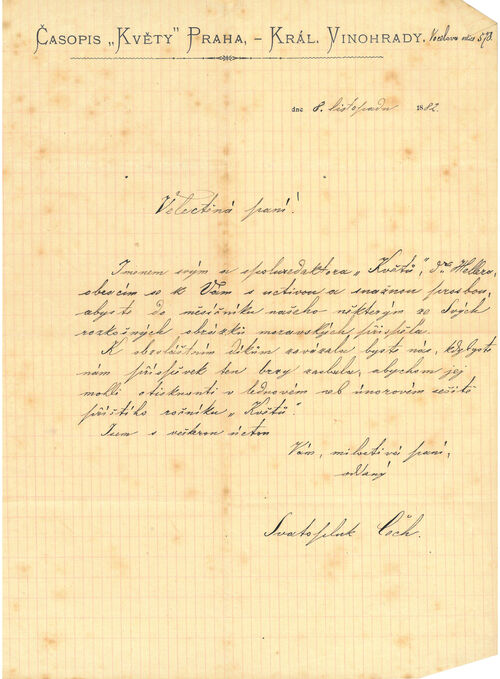 Časopis „Květy" Praha, – Král. Vinohrady, ulice 573.
dne 8. listopadu 1882.
Velectěná paní!
Jmenem svým a spoluredaktora „Květů", dra Hellera,
obracím se k Vám s uctivou a snažnou prosbou,
abyste do měsíčníku našeho některým ze Svých
rozkošných obrázků moravských přispěla.
K obzvláštním díkům zavázala byste nás, kdybyste
nám příspěvek ten brzy zaslala, abychom jej
mohli otisknouti v lednovém neb únorovém sešitě
příštího ročníku „Květů"
Jsem s veškerou úctou
Vám, milostivá paní,
oddaný
Svatopluk Čech.